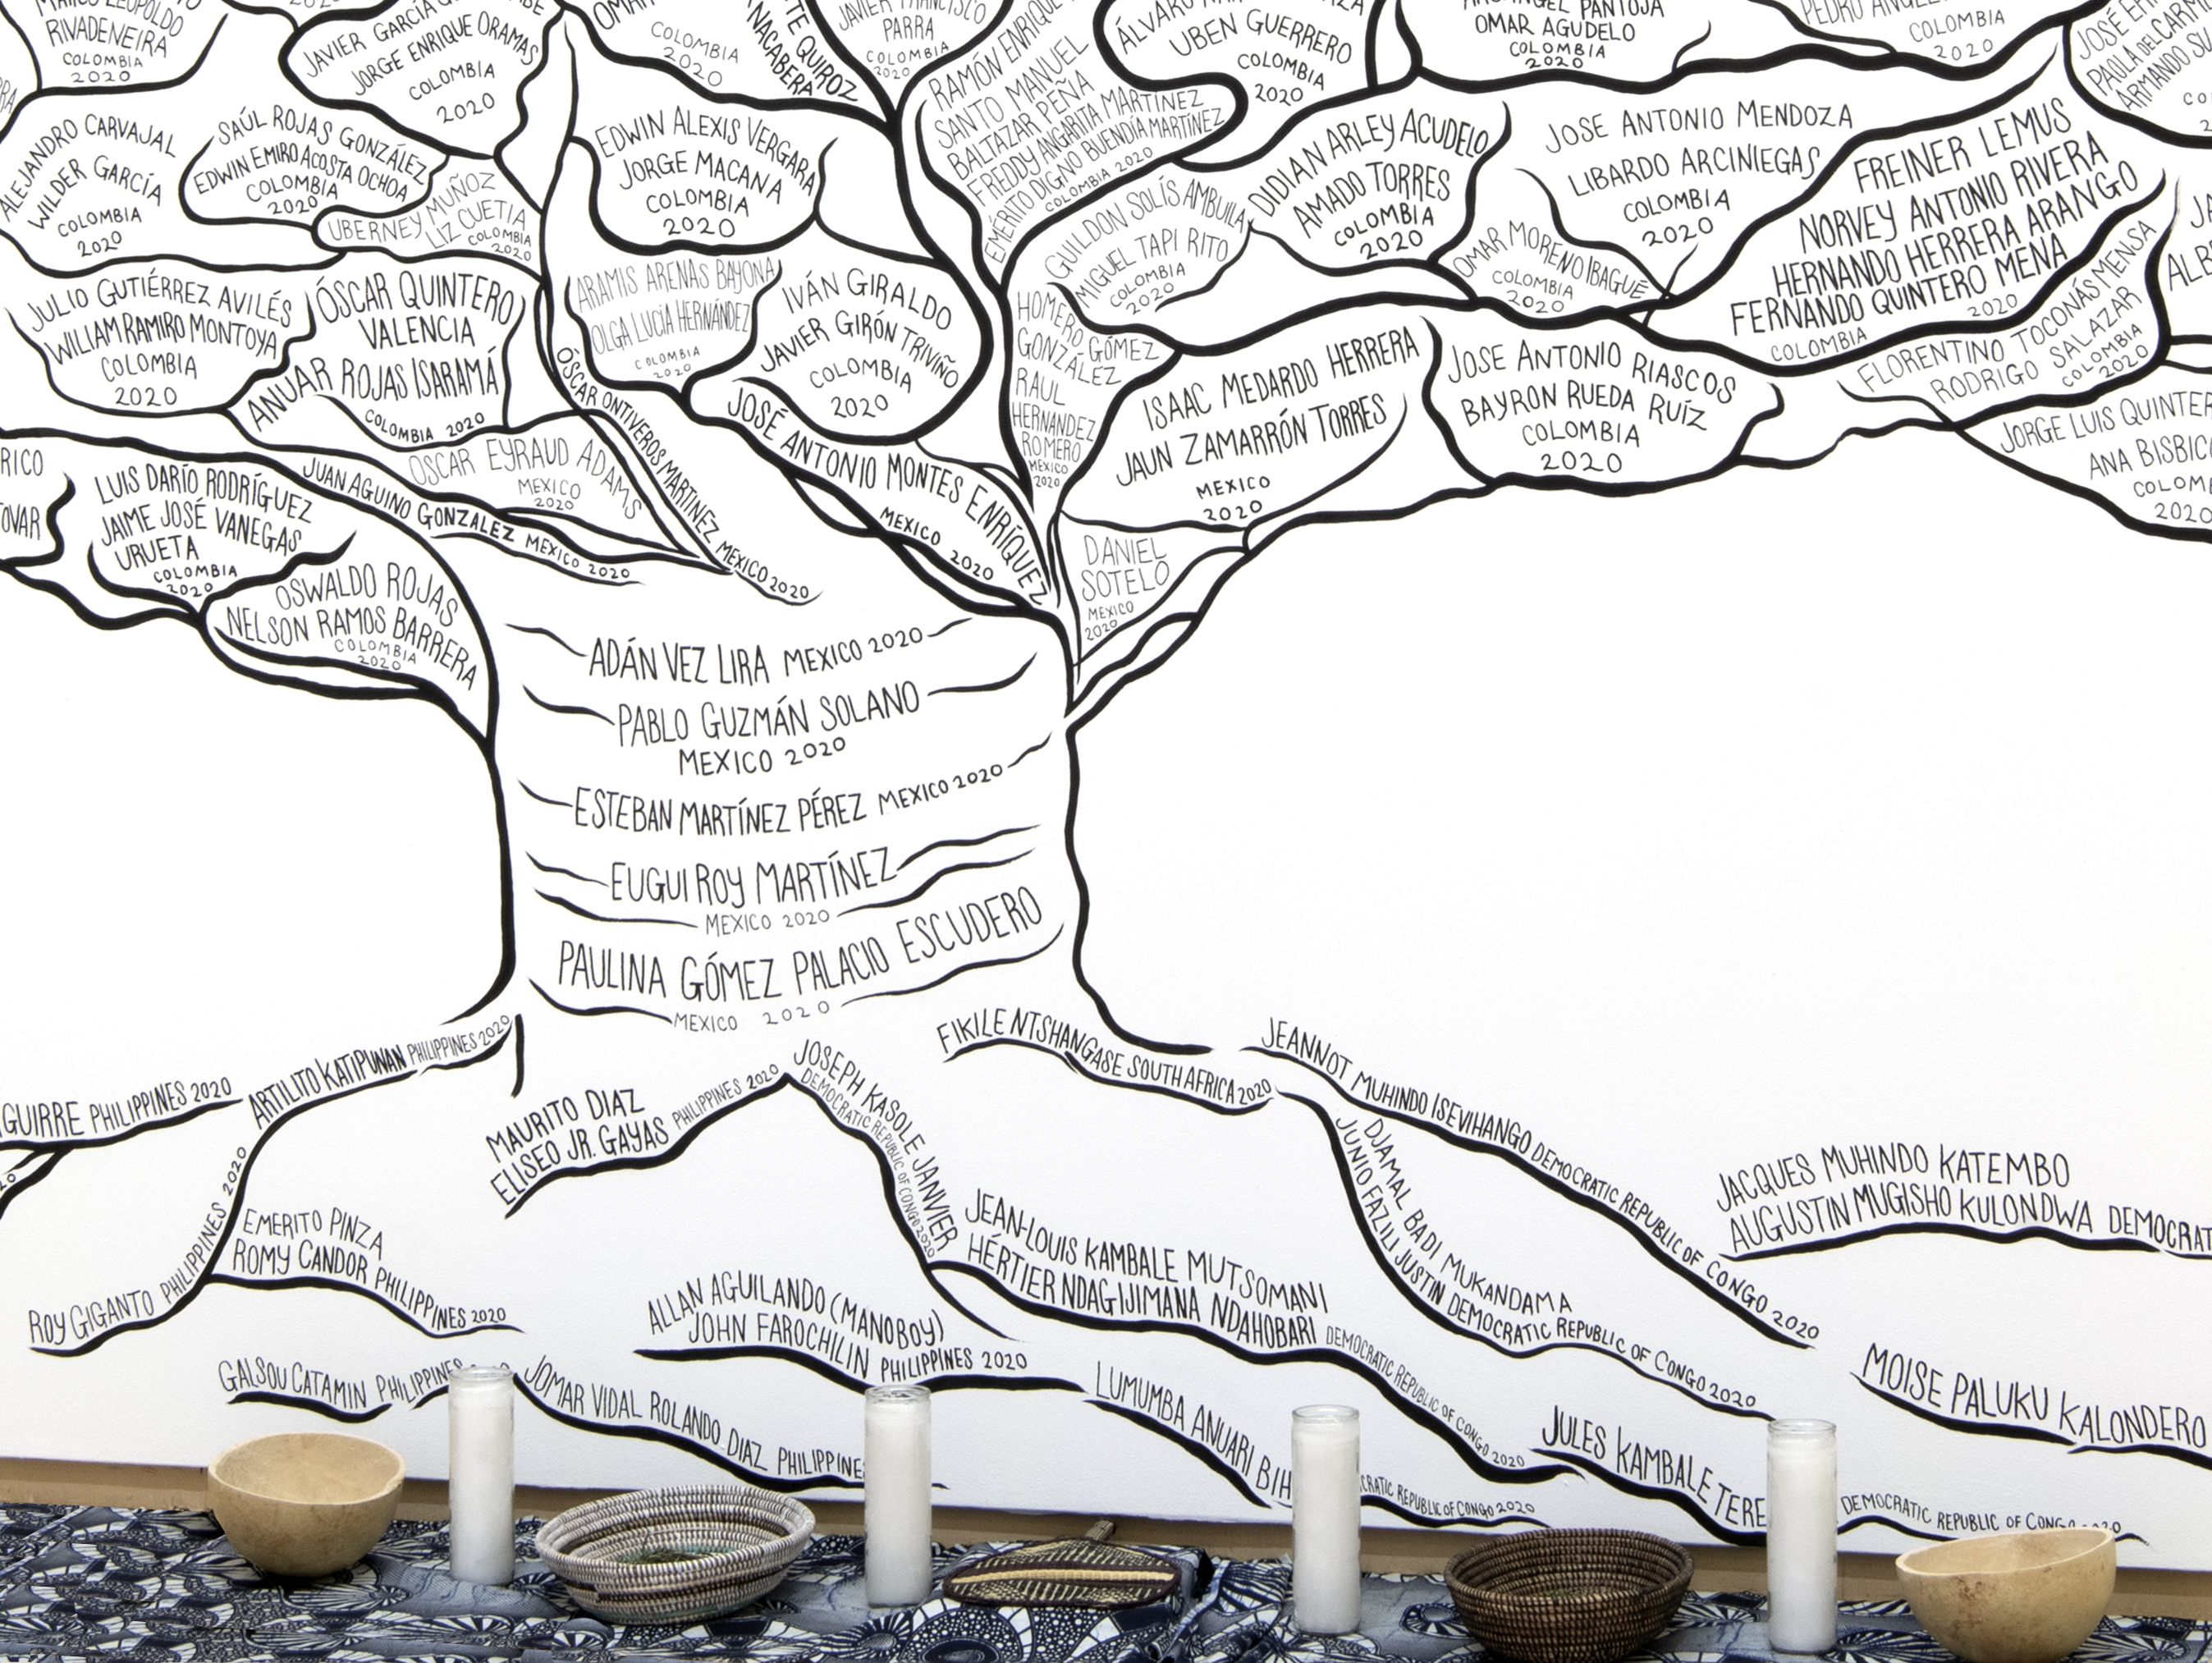 RIVADENEIRA
COLOMBIA
2020
JAVIER GARCÍA
JORGE ENRIQUE ORAMAS
COLOMBIA
2020
COLOMBIA
2020
QUIROZ
NACABERA
JAVIER FRANCISCO
PARRA
COLOMBIA
2020
RAMÓN ENRIQUE
SANTO MANUEL
BALTAZAR PEÑA
FREDDY ANGARITA MARTÍNEZ
EMÉRITO DIGNO BUENDÍA MARTÍNEZ
COLOMBIA 2020
ÁLVARO
UBEN GUERRERO
COLOMBIA
2020
PANTOJA
OMAR AGUDELO
COLOMBIA
2020
PEDRO
COLOMBIA
2020
JOSÉ
PAOLA DEL CARM
ARMANDO SU
ALEJANDRO CARVAJAL
WILDER GARCÍA
COLOMBIA
2020
SAÚL ROJAS GONZÁLEZ
EDWIN EMIRO ACOSTA OCHOA
COLOMBIA
2020
UBERNEY MUÑOZ
LIZ CUETIA
COLOMBIA
2020
EDWIN ALEXIS VERGARA
JORGE MACANA
COLOMBIA
2020
GUILDON SOLÍS AMBUILA
MIGUEL TAPI RITO
COLOMBIA
2020
DIDIAN ARLEY ACUDELO
AMADO TORRES
COLOMBIA
2020
JOSE ANTONIO MENDOZA
LIBARDO ARCINIEGAS
COLOMBIA
2020
OMAR MORENO IBAGUÉ
COLOMBIA
2020
FREINER LEMUS
NORVEY ANTONIO RIVERA
HERNANDO HERRERA ARANGO
FERNANDO QUINTERO MENA
COLOMBIA 2020
FLORENTINO TOCONÁS MENSA
RODRIGO SALAZAR
COLOMBIA
2020
JULIO GUTIÉRREZ AVILÉS
WILLIAM RAMIRO MONTOYA
COLOMBIA
2020
ÓSCAR QUINTERO
VALENCIA
ANUAR ROJAS ISARAMÁ
COLOMBIA 2020
ARAMIS ARENAS BAYONA
OLGA LUCÍA HERNÁNDEZ
COLOMBIA
2020
IVÁN GIRALDO
JAVIER GIRÓN TRIVIÑO
COLOMBIA
2020
HOMERO GÓMEZ
GONZÁLEZ
RAUL
HERNANDEZ
ROMERO
MEXICO
2020
ISAAC MEDARDO HERRERA
JAUN ZAMARRÓN TORRES
MEXICO
2020
JOSE ANTONIO RIASCOS
BAYRON RUEDA RUÍZ
COLOMBIA
2020
JORGE LUIS QUINTER
ANA BISBIC
COLOM
2020
RICO
TOVAR
LUIS DARÍO RODRÍGUEZ
JAIME JOSÉ VANEGAS
URUETA
COLOMBIA
2020
OSWALDO ROJAS
NELSON RAMOS BARRERA
COLOMBIA
2020
OSCAR EYRAUD ADAMS
MEXICO
2020
JUAN AGUINO GONZALEZ MEXICO 2020
ÓSCAR ONTIVEROS MARTINEZ MEXICO 2020
JOSÉ ANTONIO MONTES ENRÍQUEZ
MEXICO 2020
DANIEL
SOTELO
MEXICO
2020
ADÁN VEZ LIRA MEXICO 2020
PABLO GUZMÁN SOLANO
MEXICO 2020
ESTEBAN MARTÍNEZ PÉREZ MEXICO 2020
EUGUI ROY MARTÍNEZ
MEXICO 2020
PAULINA GÓMEZ PALACIO ESCUDERO
MEXICO 2020
GUIRRE PHILIPPINES 2020
ARTILITO KATIPUNAN PHILIPPINES 2020
ROY GIGANTO PHILIPPINES 2020
EMERITO PINZA
ROMY CANDOR PHILIPPINES 2020
MAURITO DIAZ
ELISEO JR. GAYAS PHILIPPINES 2020
JOSEPH KASOLE JANVIER
DEMOCRATIC REPUBLIC OF CONGO 2020
FIKILE NTSHANGASE SOUTH AFRICA 2020
JEANNOT MUHINDO ISEVIHANGO DEMOCRATIC REPUBLIC OF CONGO 2020
DJAMAL BADI MUKANDAMA
JUNIO FAZILI JUSTIN DEMOCRATIC REPUBLIC OF CONGO 2020
JACQUES MUHINDO KATEMBO
AUGUSTIN MUGISHO KULONDWA DEMOCRAT
JEAN-LOUIS KAMBALE MUTSOMANI
HÉRTIER NDAGIJIMANA NDAHOBARI DEMOCRATIC REPUBLIC OF CONGO 2020
ALLAN AGUILANDO (MANOBOY)
JOHN FAROCHILIN PHILIPPINES 2020
GALSOU CATAMIN PHILIPPINES
JOMAR VIDAL ROLANDO DIAZ PHILIPPINE
LUMUMBA ANUARI BIH CRATIC REPUBLIC OF CONGO 2020
JULES KAMBALE TERE DEMOCRATIC REPUBLIC OF
MOISE PALUKU KALONDERO